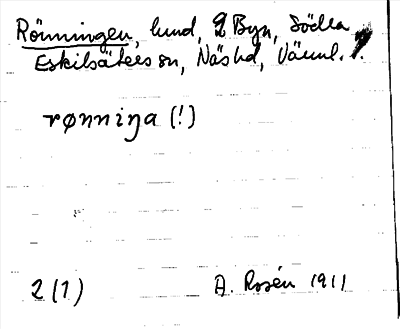 Rönningen, lund, Byn, Södra
Eskilsäters sn, Näs hd, Värml.
rønniŋa (!)
2 (1) A. Rosén 1911